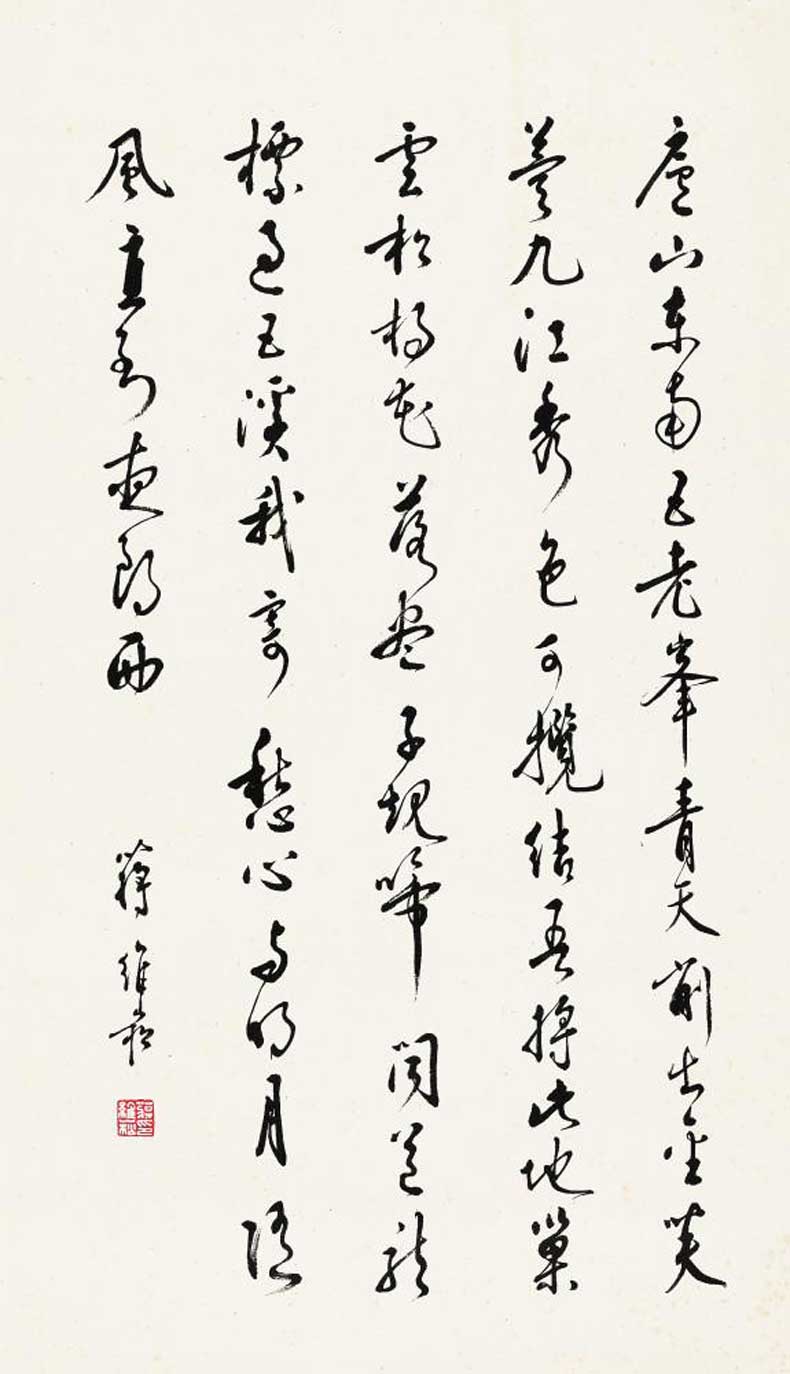 廬山東南五老峯青天削出金芙
蓉九江秀色可攬結吾將此地巢
雲松楊花落盡子規啼聞道龍
標過五溪我寄愁心與明月隨
風直到夜郎西
蔣維崧